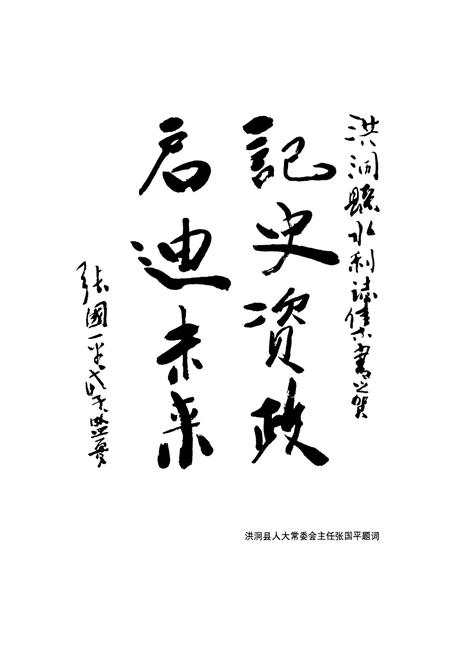 洪洞縣水利誌書之賀
記史資政
启迪未来
張國平盛夏
洪洞县人大常委会主任张国平题词